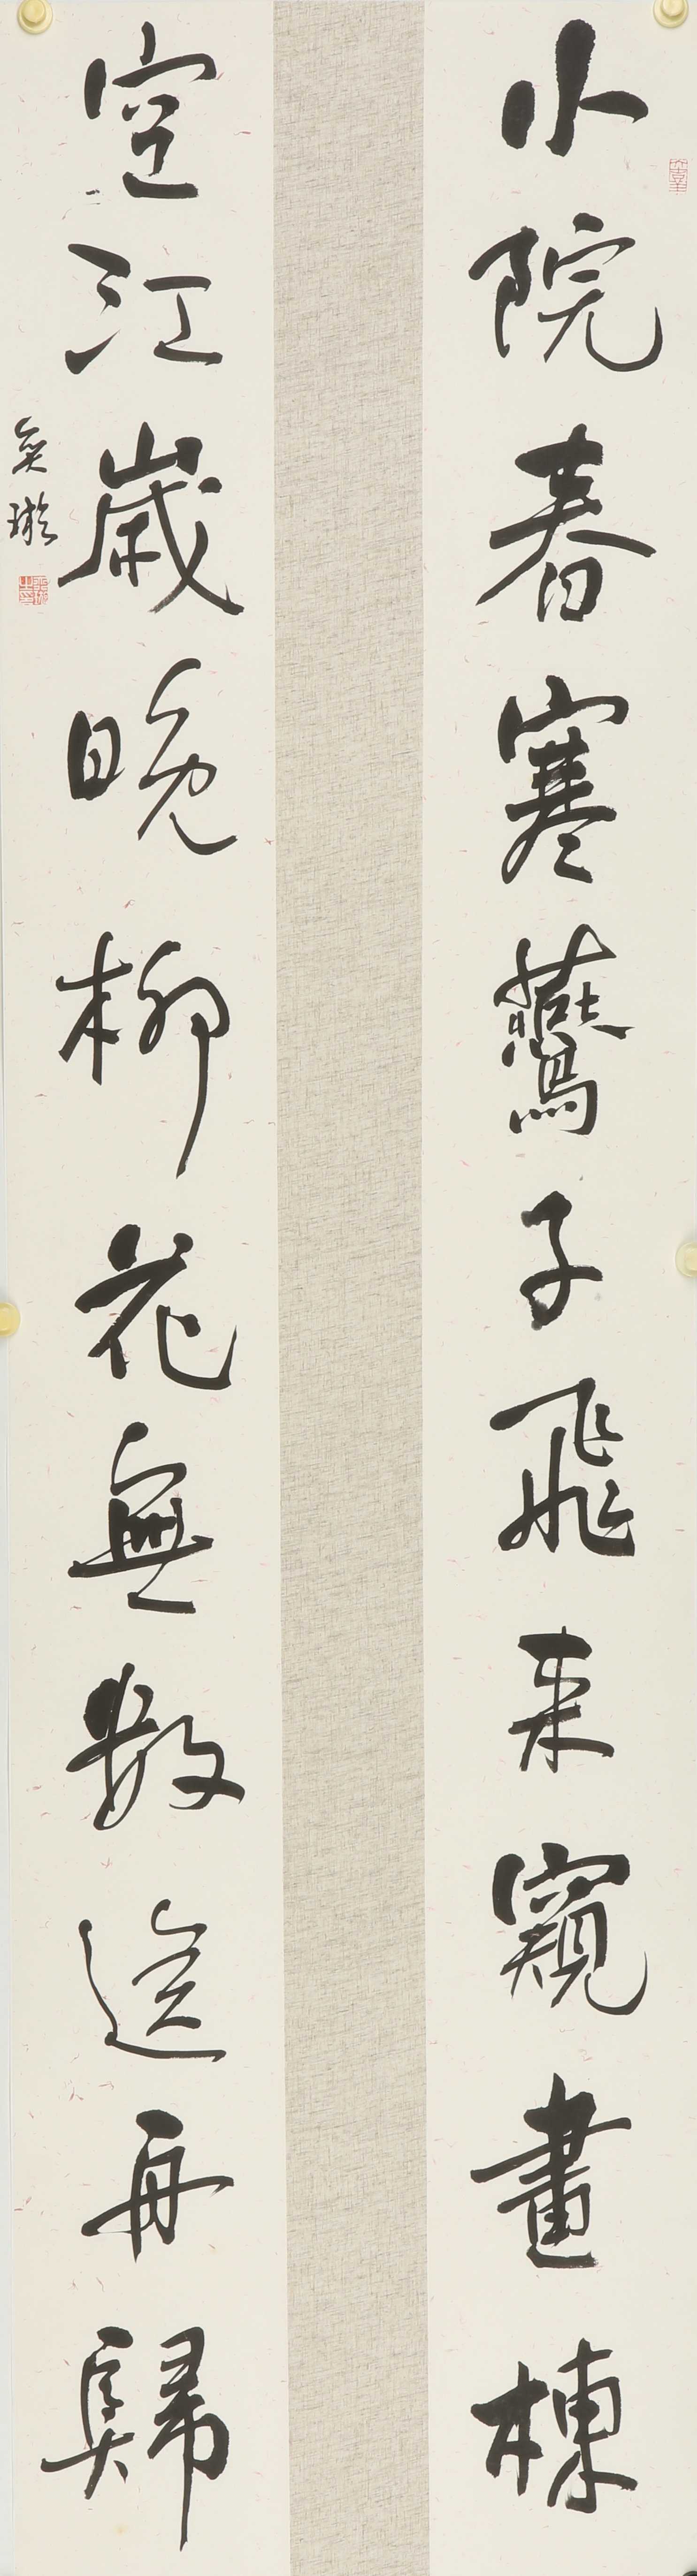 小院春寒鷰子飛来窺畫棟
空江歲晚柳花無數送舟歸